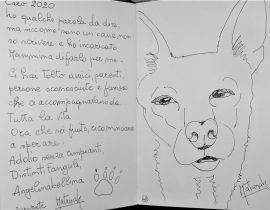 Caro 2020
ho qualche parola da dire,
ma siccome sono un cane, non
so scrivere e ho incaricato
Mammina di farlo per me.
Ci hai tolto amici, parenti,
persone sconosciute e famose
che ci accompagnavano da
Tutta la vita
Ora che sei finito, ricominciamo
a sperare.
Addio senza rimpianti,
Distinti
Angelinabellina